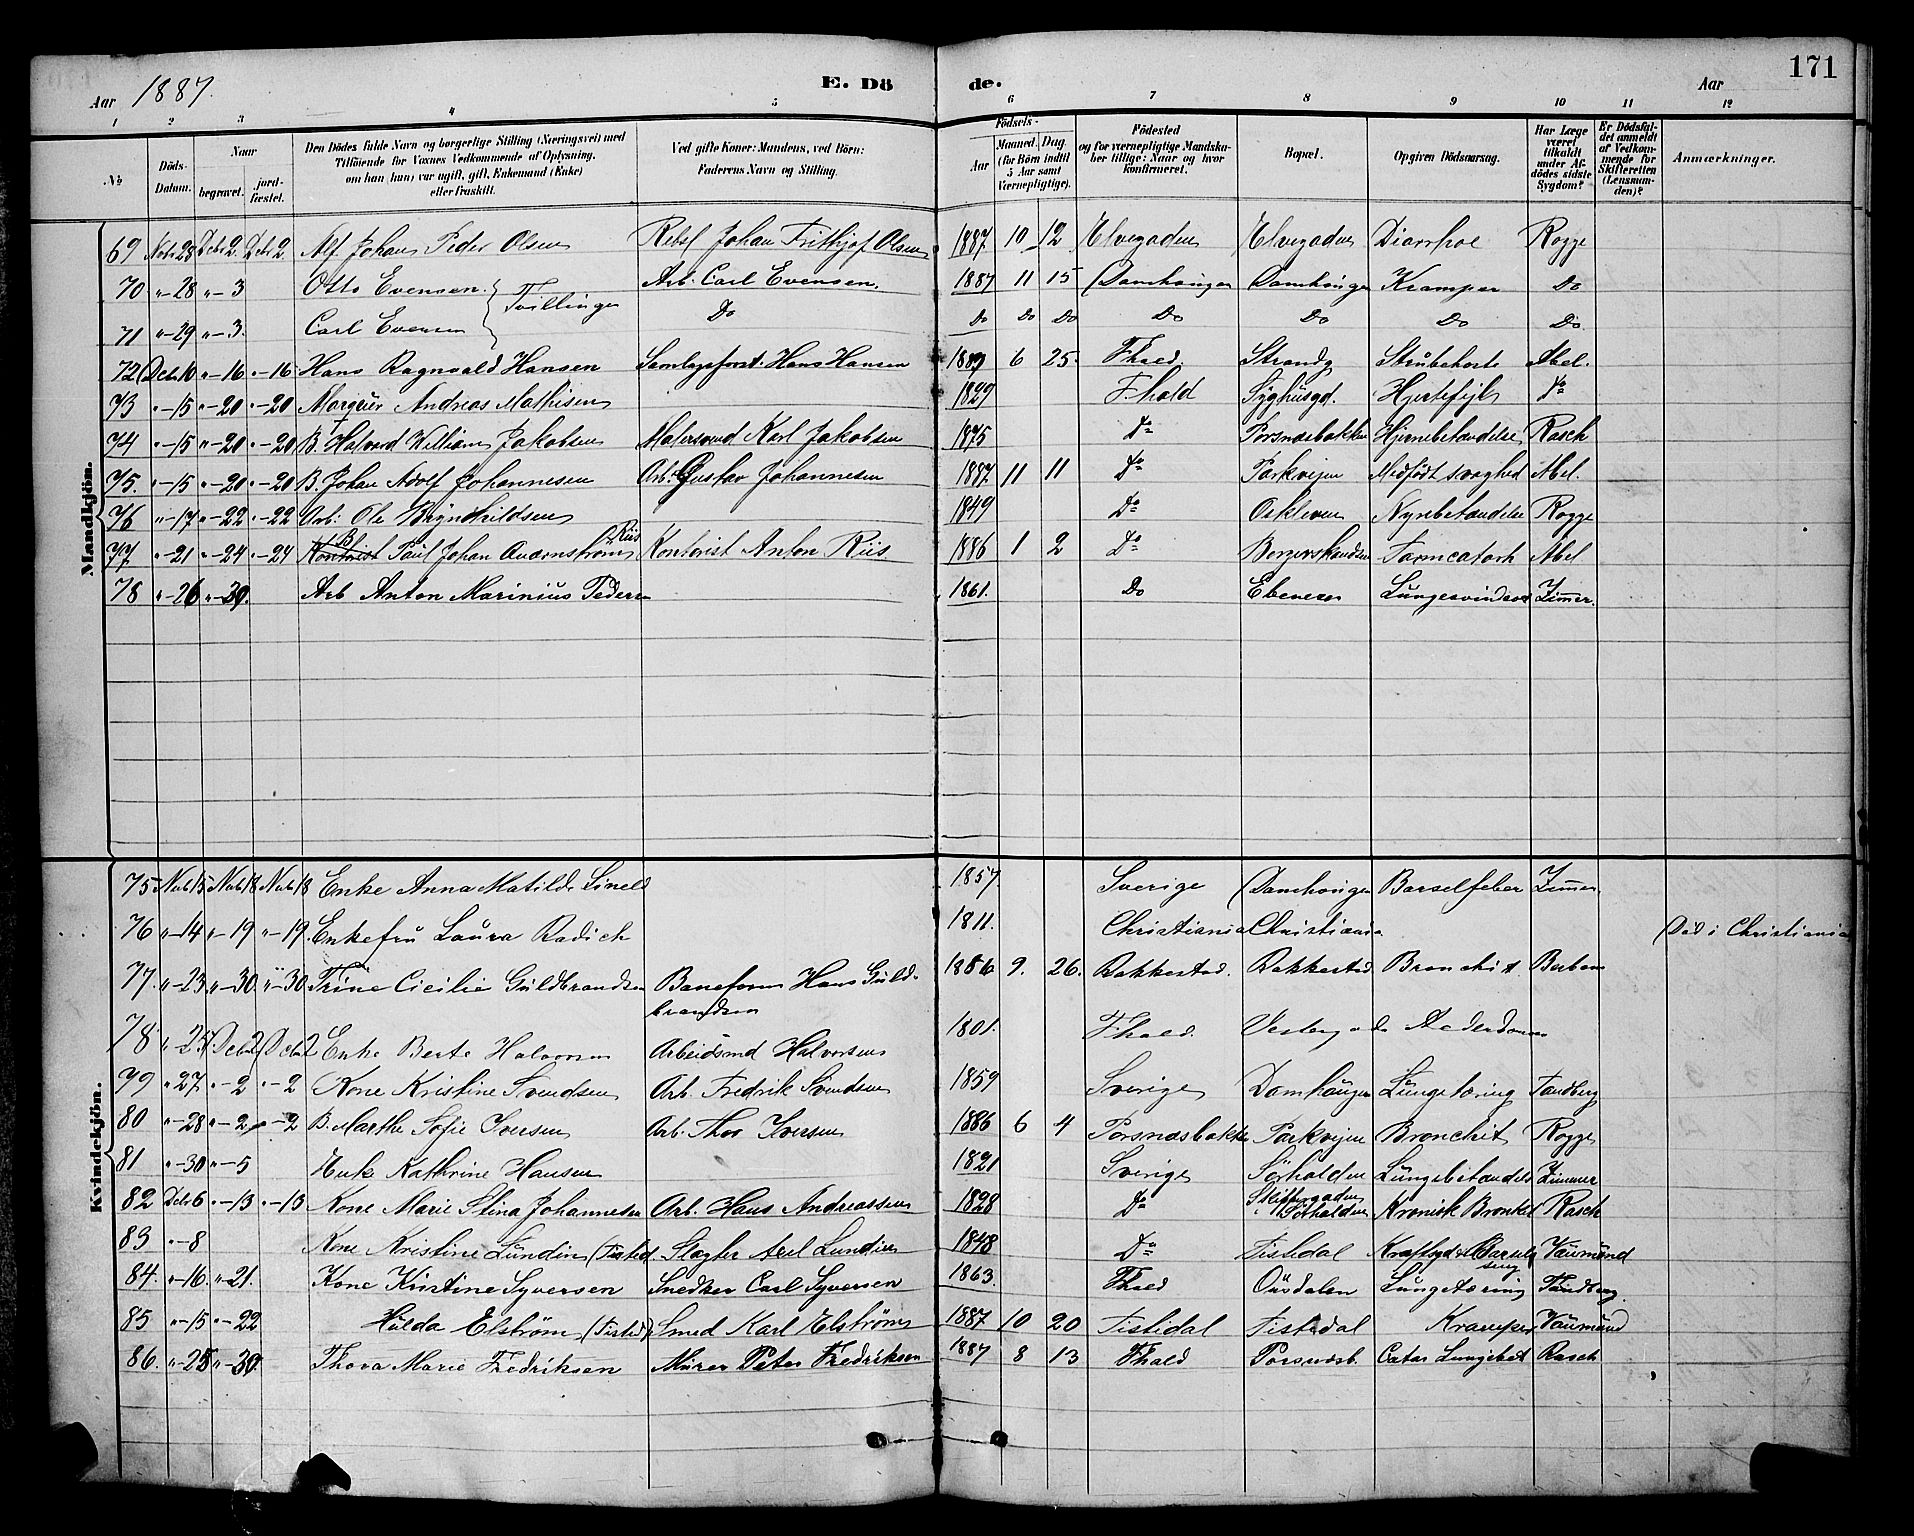 171
Aar 1887. E. Dö de. Aar
1 2 3 4 5 6 7 8 9 10 11 12
No Döds-Datum. Naar begravet. jord-fæstet. Den Dödes fulde Navn og borgerlige Stilling (Næringsvei) med Tilföiende for Voxnes Vedkommende af Oplysning, om han (hun) var ugift, gift, Enkemand (Enke) eller fraskilt. Ved gifte Koner: Mandens, ved Börn: Faderens Navn og Stilling. Födsels- Aar Maaned Dag (for Börn indtil 5 Aar samt Værnepligtige). Födested og for værnepligtige Mandskaber tillige: Naar og hvor konfirmeret. Bopæl. Opgiven Dödsaarsag. Har Læge været tilkaldt under Afdödes sidste Sygdom? Er Dödsfaldet anmeldt af Vedkommende for Skifteretten (Lensmanden)? Anmærkninger.
Mandkjön.
69 Novbr 28 Debr 2. Debr 2 Alf Johan Peder Olsen Rebsl Johan Frithjof Olsen 1887 10 12 Elvegaden Elvegaden Diarrhoe Rogge
70 "-28 "-3 Otto Evensen Tvillinger Arb. Carl Evensen. 1887 11 15 Damhougen Damhougen Kramper Do
71 "-29 "-3. Carl Evensen Do Do Do Do Do Do Do Do
72 Debr 10 "-16 "-16 Hans Ragnvald Hansen Samlagsforst. Hans Hansen 6 25 Fhald. Strandg Strubehoste Abel.
73 "-15 "-20 "-20 Andreas Mathisen 1829 Fhald Syghusgd. Hjertefejl Do
74 "-15 "-20 "-20 B. Halvard William Jakobsen Malersvend Karl Jakobsen 1875 Do Porsnæsbakken Hjernebetændelse Rasch
75. "-15 "-20 "-20 B. Johan Adolf Johannesen Arb: Gustav Johannesen 1887 11 11 Do Parkvejen Medfödt svaghed Abel.
76 "-17 "-22 "-22 Arb: Ole Brynhildsen 1849 Do Oskleven Nyrebetændelse Rogge
77 "-21 "-24 "-24 B. Paul Johan Qvarnström Riis Kontorist Anton Riis 1886 1 2 Do Tarmcatarh Abel
78 "-26 "-30. Arb Anton Marinius Peders 1861. Do Ebenezer Lungesvindsot Zimmer.
Kvindekjön.
75 Novb 15 Novb 18 Novb 18 Enke Anna Matilde Linell 1857. Sverige Damhougen Barselfeber Zimmer
76 "-14 "-19 "-19. Enkefru Laura Radich 1811. Christiania Christiania Död i Christiania
77. "-23 "-30. "-30 Trine Cicilie Guldbrandsen Baneform Hans Guld-
brandsen 1886 9. 26. Rakkestad. Rakkestad Bronchit
78. "-25 Debr 2 Debr 2 Enke Berte Halvorsen Arbeidsmd Halvorsen 1801. Fhald. Vestergade Alderdom
79 "27 "-2 "-2 Kone Kristine Svendsen Arb. Fredrik Svendsen 1859 Sverige Damhaugen Lungetæring Tandberg
80 "-28 "-2 "-2 B. Marthe Sofie Iversen Arb. Thor Iversen 1886 6 4 Porsnæsbakken Parkvejen Bronchit Rogge
81 "-30 "-5 Enke Kathrine Hansen 1821 Sverige Sörhalden Lungebetændelse Zimmer
82 Debr 6 "-13 "-13 Kone Marie Stina Johannesen Arb. Hans Andreassen 1828 Do Sörhalden Kronisk Bronkit Rasch
83 "-8 Kone Kristine Lundin (Tisted. Slagter Axel Lundin 1848 Do Tistedal Vaumund
84. "-16. "-21. Kone Kristine Syversen Snedker Carl Syversen 1863. Fhald Ousdalen Lungetæring Tandberg.
85 "-15 "-22 Hulda Elström (Tisted). Smed Karl Elström 1887 10 20 Tistedal Tistedal Kramper Vaumund
86. "-25 "-30. Thora Marie Fredriksen Murer Peter Fredriksen 1887 8 13 Fhald Porsnæsb. Catar Lungebet Rasch